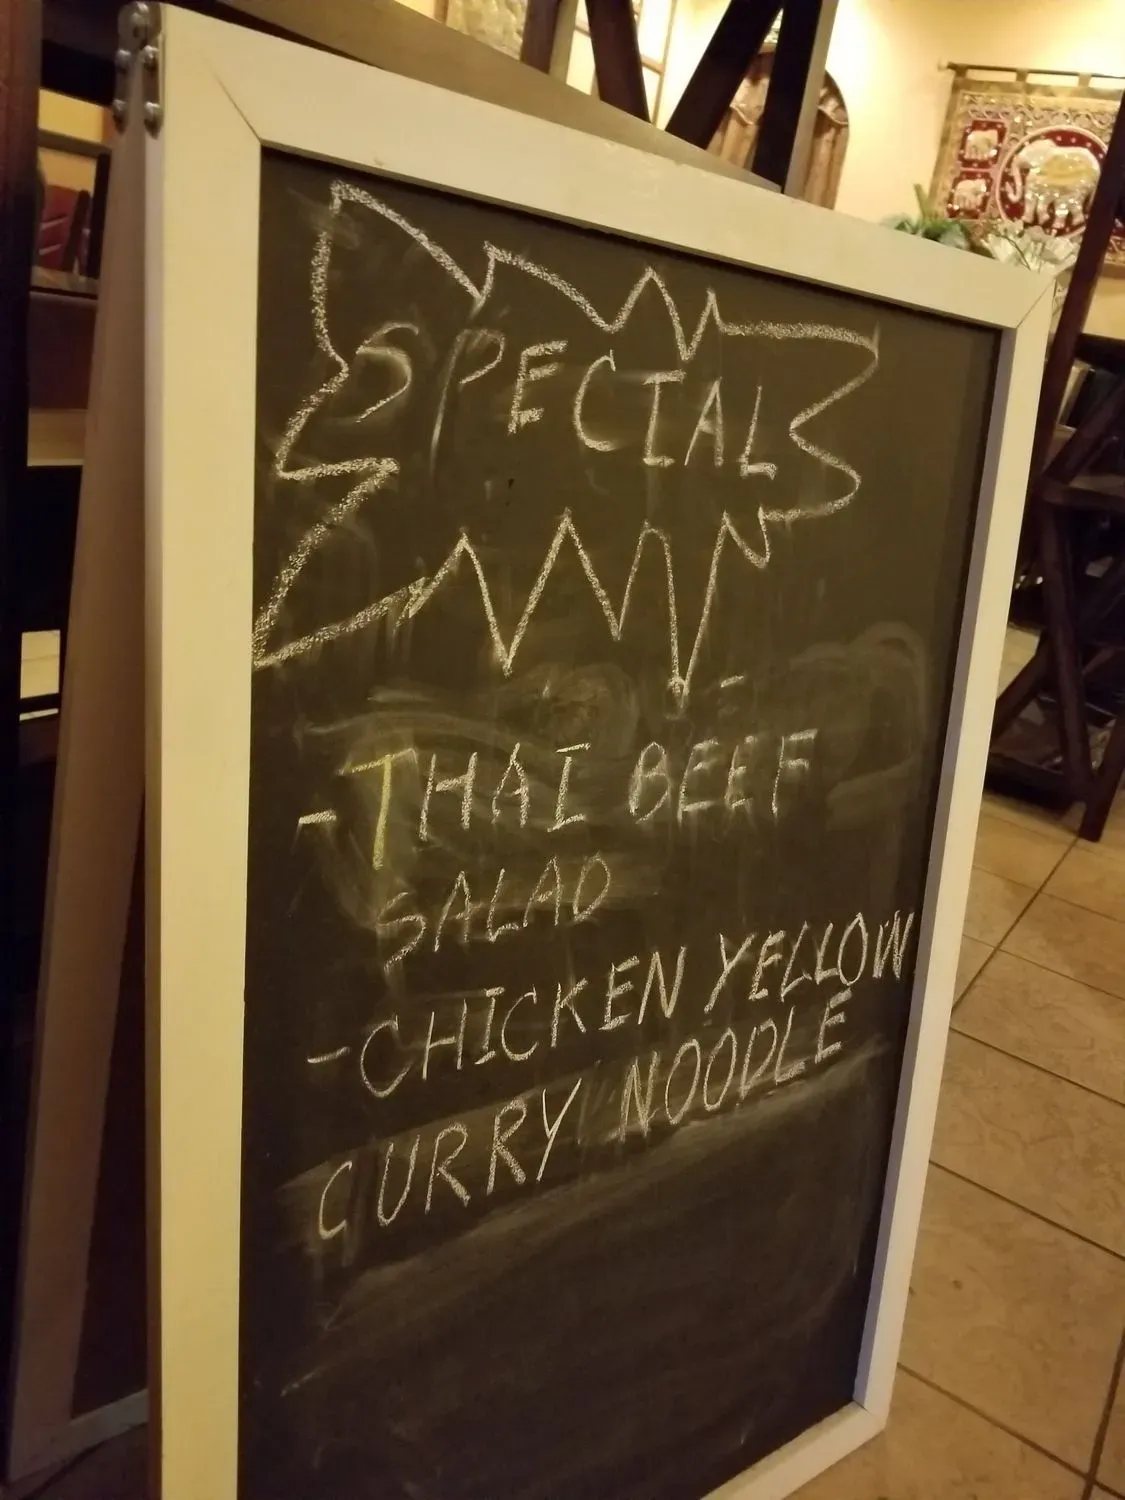 SPECIAL
- THAI BEEF
SALAD
- CHICKEN YELLOW
CURRY NOODLE